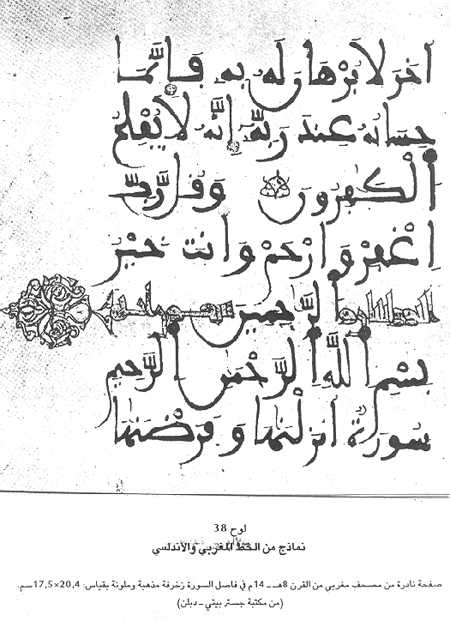 اخر لا برهان له به فانما
حسابه عند ربه انه لا يفلح
الكفرون وقل رب
اغفر وارحم وانت خير
الرحمين
بسم الله الرحمن الرحيم
سورة انزلنها وفرضنها
لوح 38
نماذج من الخط المغربي والاندلسي
صفحة نادرة من مصحف مغربي من القرن 8هـ ـ 14م في فاصل السورة زخرفة مذهبة وملونة بقياس: 20,4×17,5سم.
(من مكتبة جستر بيتي ـ دبلن)